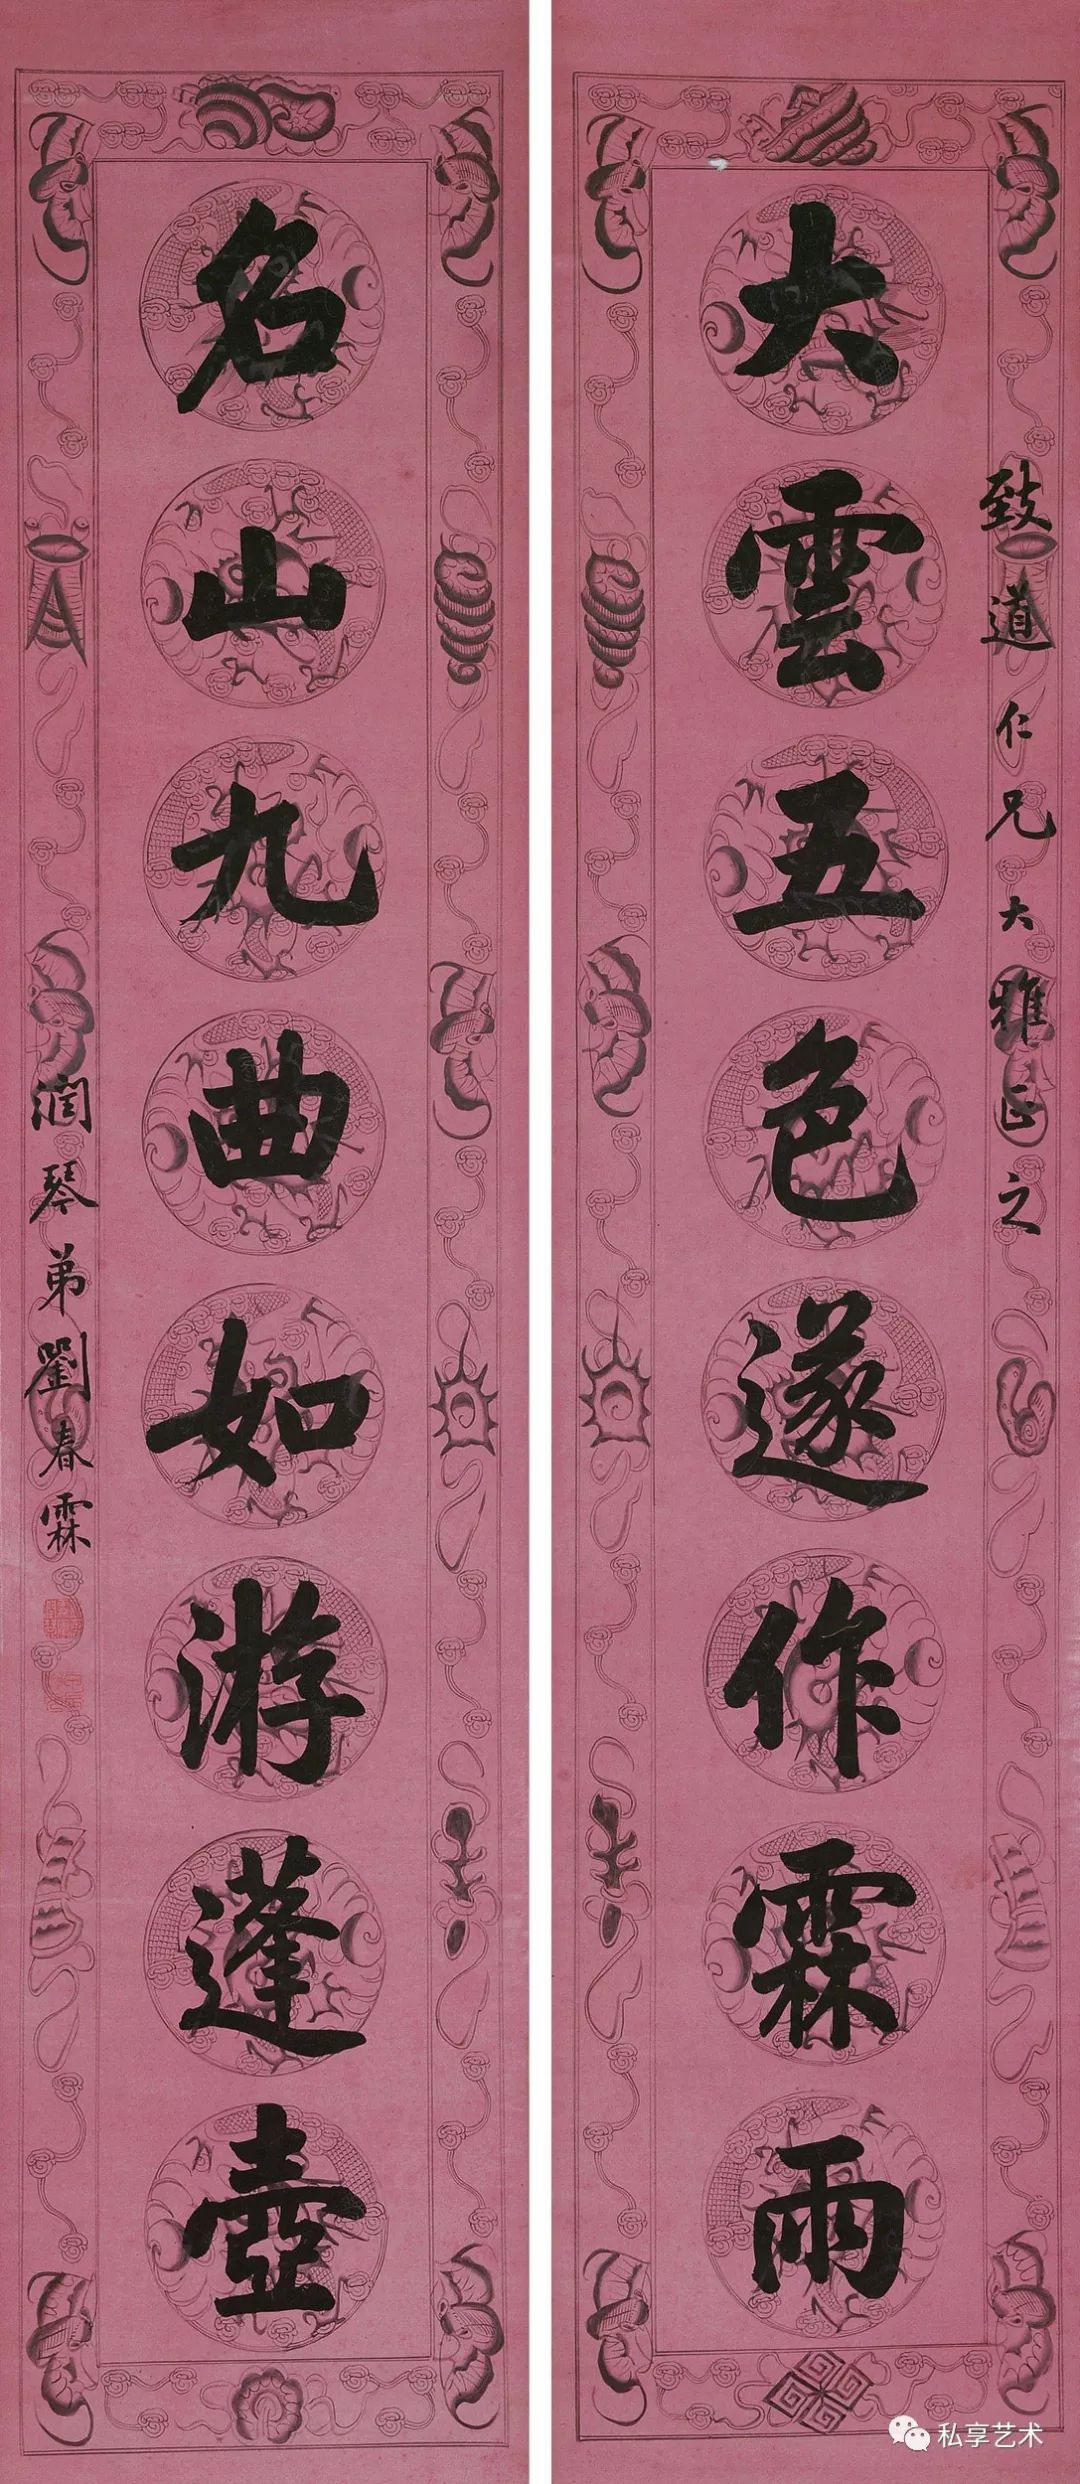 致道仁兄大雅正之
大雲五色遂作霖雨
名山九曲如游蓬壺
潤琴弟劉春霖
私享艺术